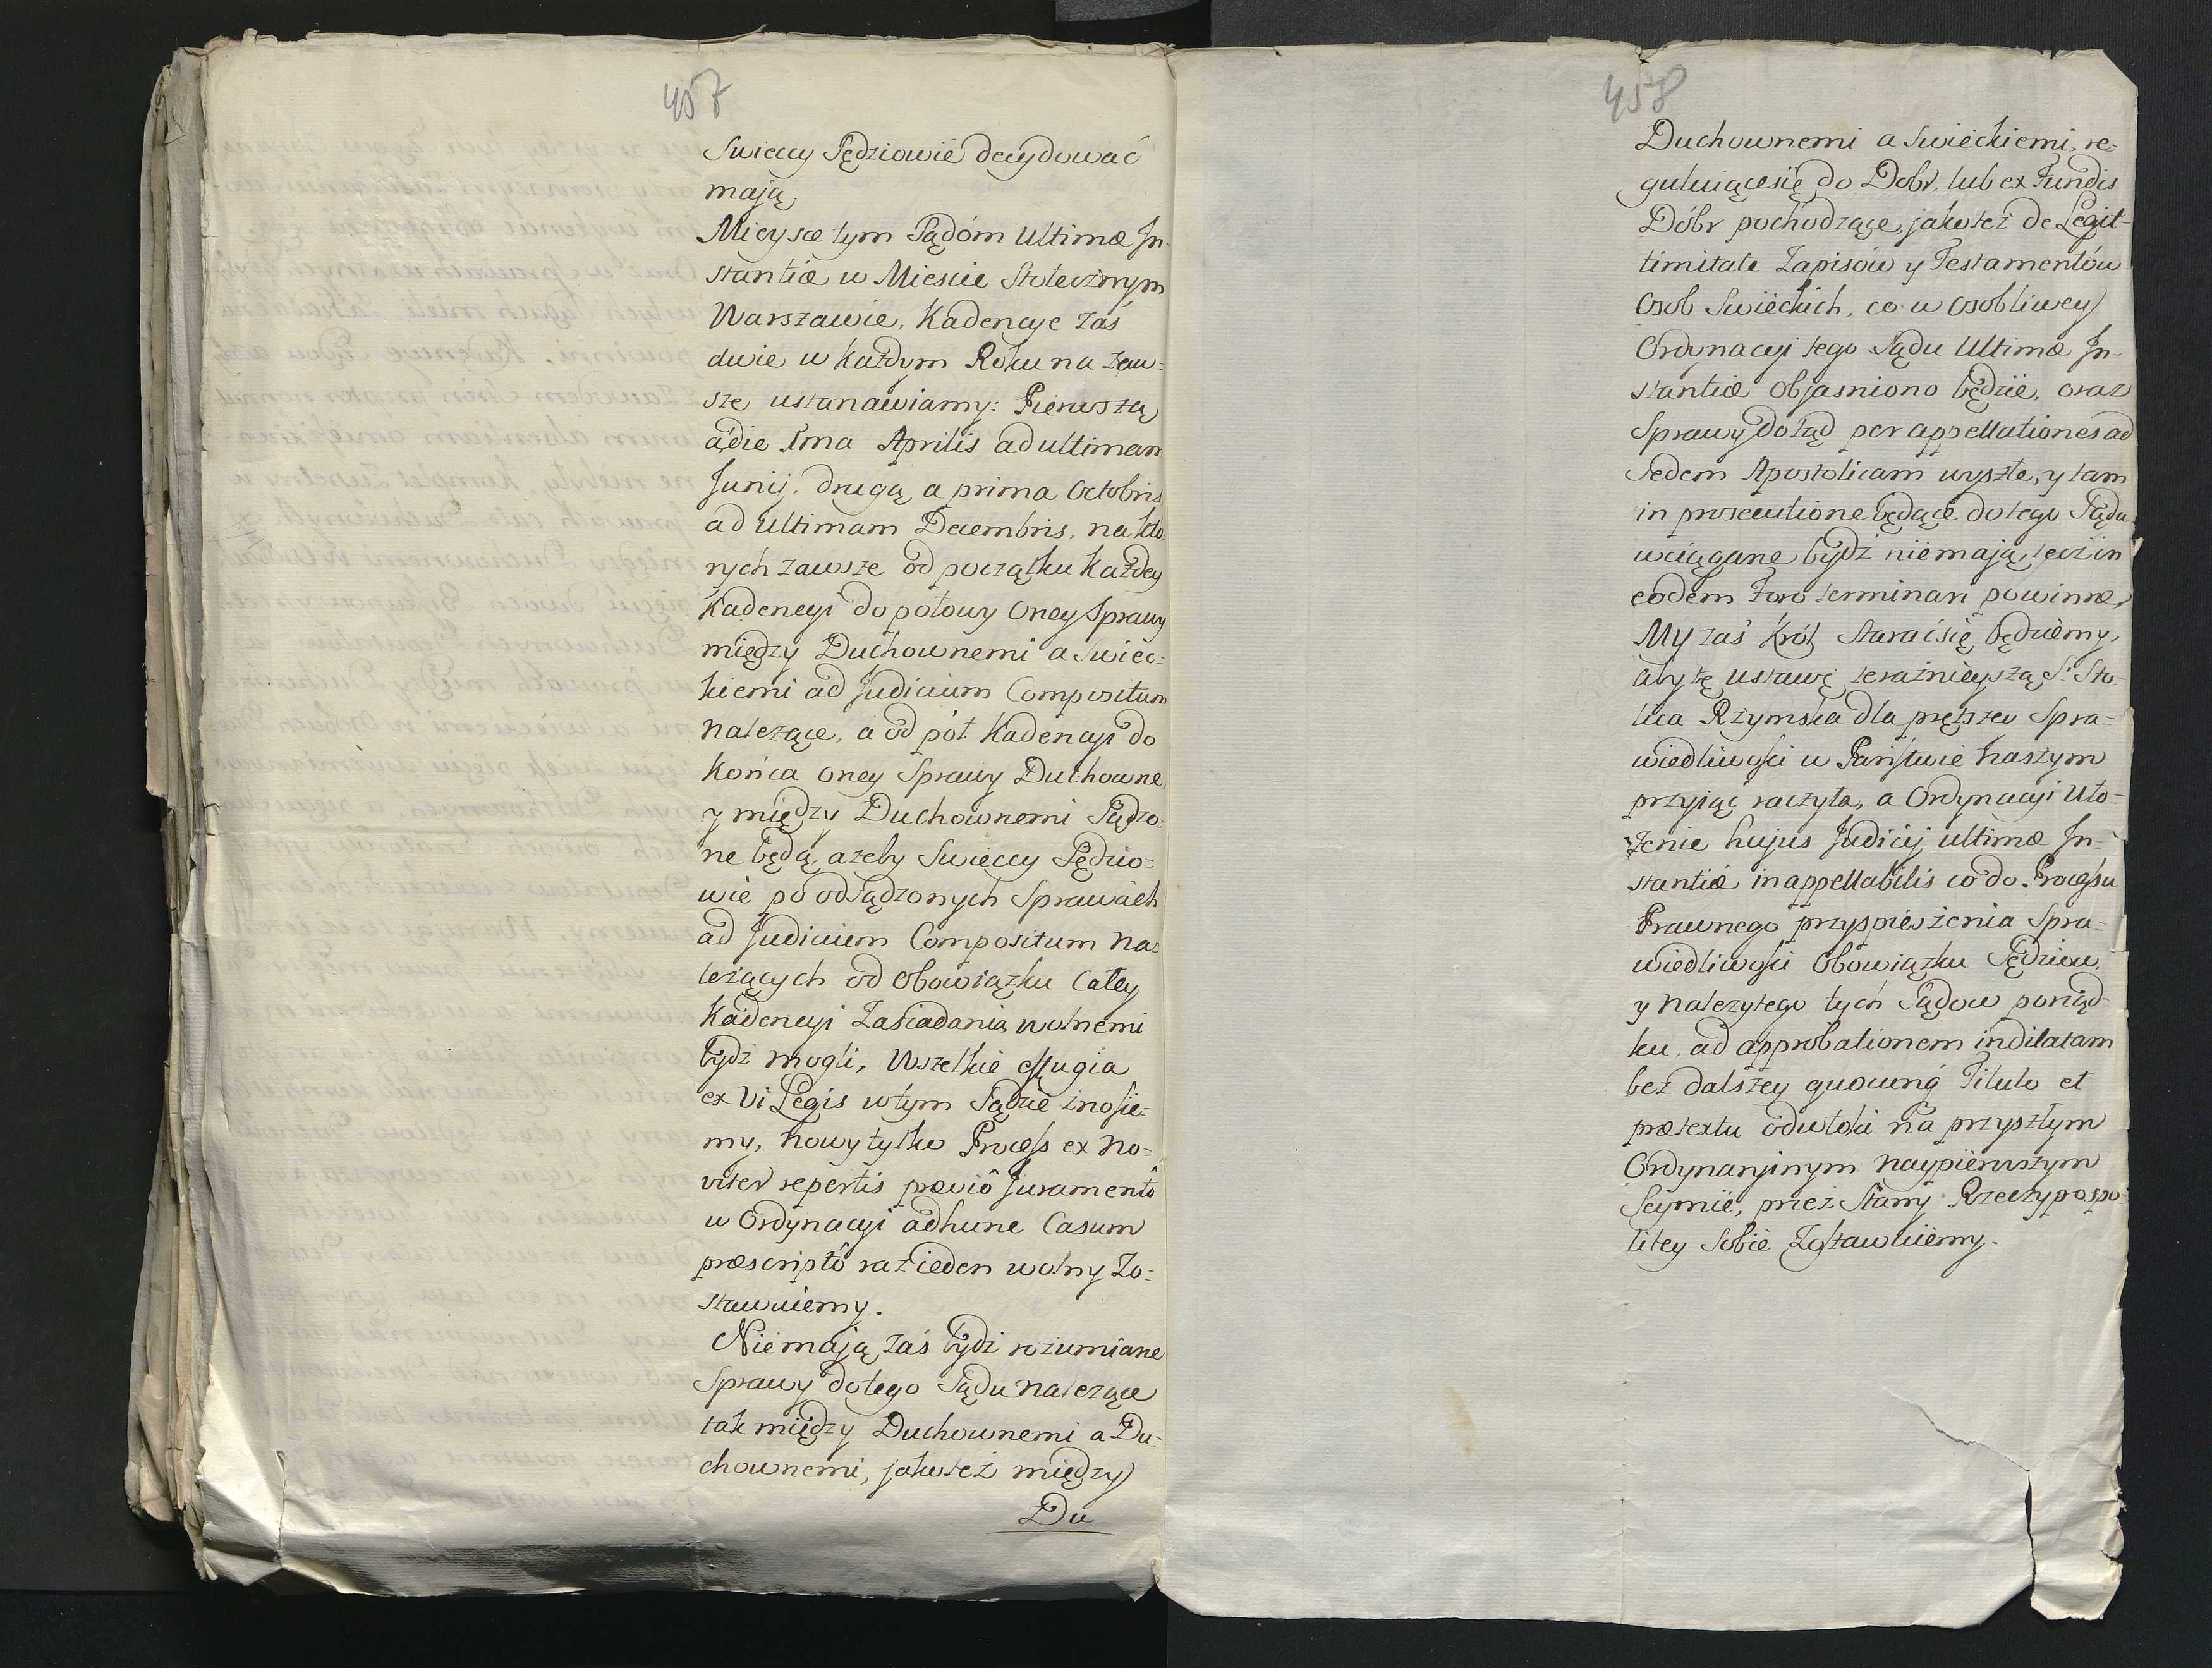 457
Swieccy Sędziowie decydować
mają.
Mieysce tym Sądóm Ultimæ In-
stantiæ w Miescie Stołecznym
Warszawie, Kadencye zaś
dwie w każdym Roku na zaw-
sze ustanawiamy: Pierwszą
a die 1ma Aprilis ad ultimam
Junij, drugą a prima Octobris
ad ultimam Decembris, na któ-
rych zawsze od początku każdey
Kadencyi do połowy oney Sprawy
między Duchownemi a Swiec-
kiemi ad Judicium Compositum
należące, a od pół Kadencyi do
końca oney Sprawy Duchowne
y między Duchownemi Sądzo-
ne będą, ażeby Swieccy Sędzio-
wie po odsądzonych Sprawach
ad Judicium Compositum na-
leżących od obowiązku całey
Kadencyi zasiadania wolnemi
bydź mogli, Wszelkie effugia
ex Vi Legis w tym Sądzie znosie-
my, nowy tylko Process ex no-
viter repertis præviô Juramentô
w Ordynacyi adhunc Casum
præscriptô raz ieden wolny Zo-
stawuiemy.
Nie mają zaś bydź rozumiane
Sprawy do tego Sądu należące
tak między Duchownemi a Du-
chownemi, jako też między
Du
458
Duchownemi a Swieckiemi, re-
guluiące się do Dobr, lub ex Fundis
Dóbr pochodzące, jako też de Legit-
timitate Zapisów y Testamentów
Osob Swieckich, co w osobliwey
Ordynacyi tego Sądu Ultimæ In-
stantiæ objasniono będzie, oraz
Sprawy dotąd per appellationes ad
Sedem Apostolicam wyszłe, y tam
in prosecutione będące do tego Sądu
wciągane bydź nie mają, lecz in
eodem Foro terminari powinne,
My zaś Król starać się będziemy,
aby tę ustawę teraźnieyszą S. Sto-
lica Rzymska dla prętszey Spra-
wiedliwości w Państwie naszym
przyiąć raczyła, a Ordynacyi Uło-
żenie hujus Judicij ultimæ In-
stantiæ inappellabilis co do Processu
Prawnego przyspieszenia Spra-
wiedliwości Obowiązku Sędziów,
y należytego tych Sądow porząd-
ku, ad approbationem indilatam
bez dalszey quoving Titulo et
prætextu odwłoki na przyszłym
Ordynaryinym naypierwszym
Seymie, przez Stany Rzeczypospo-
litey Sobie Zostawuiemy.